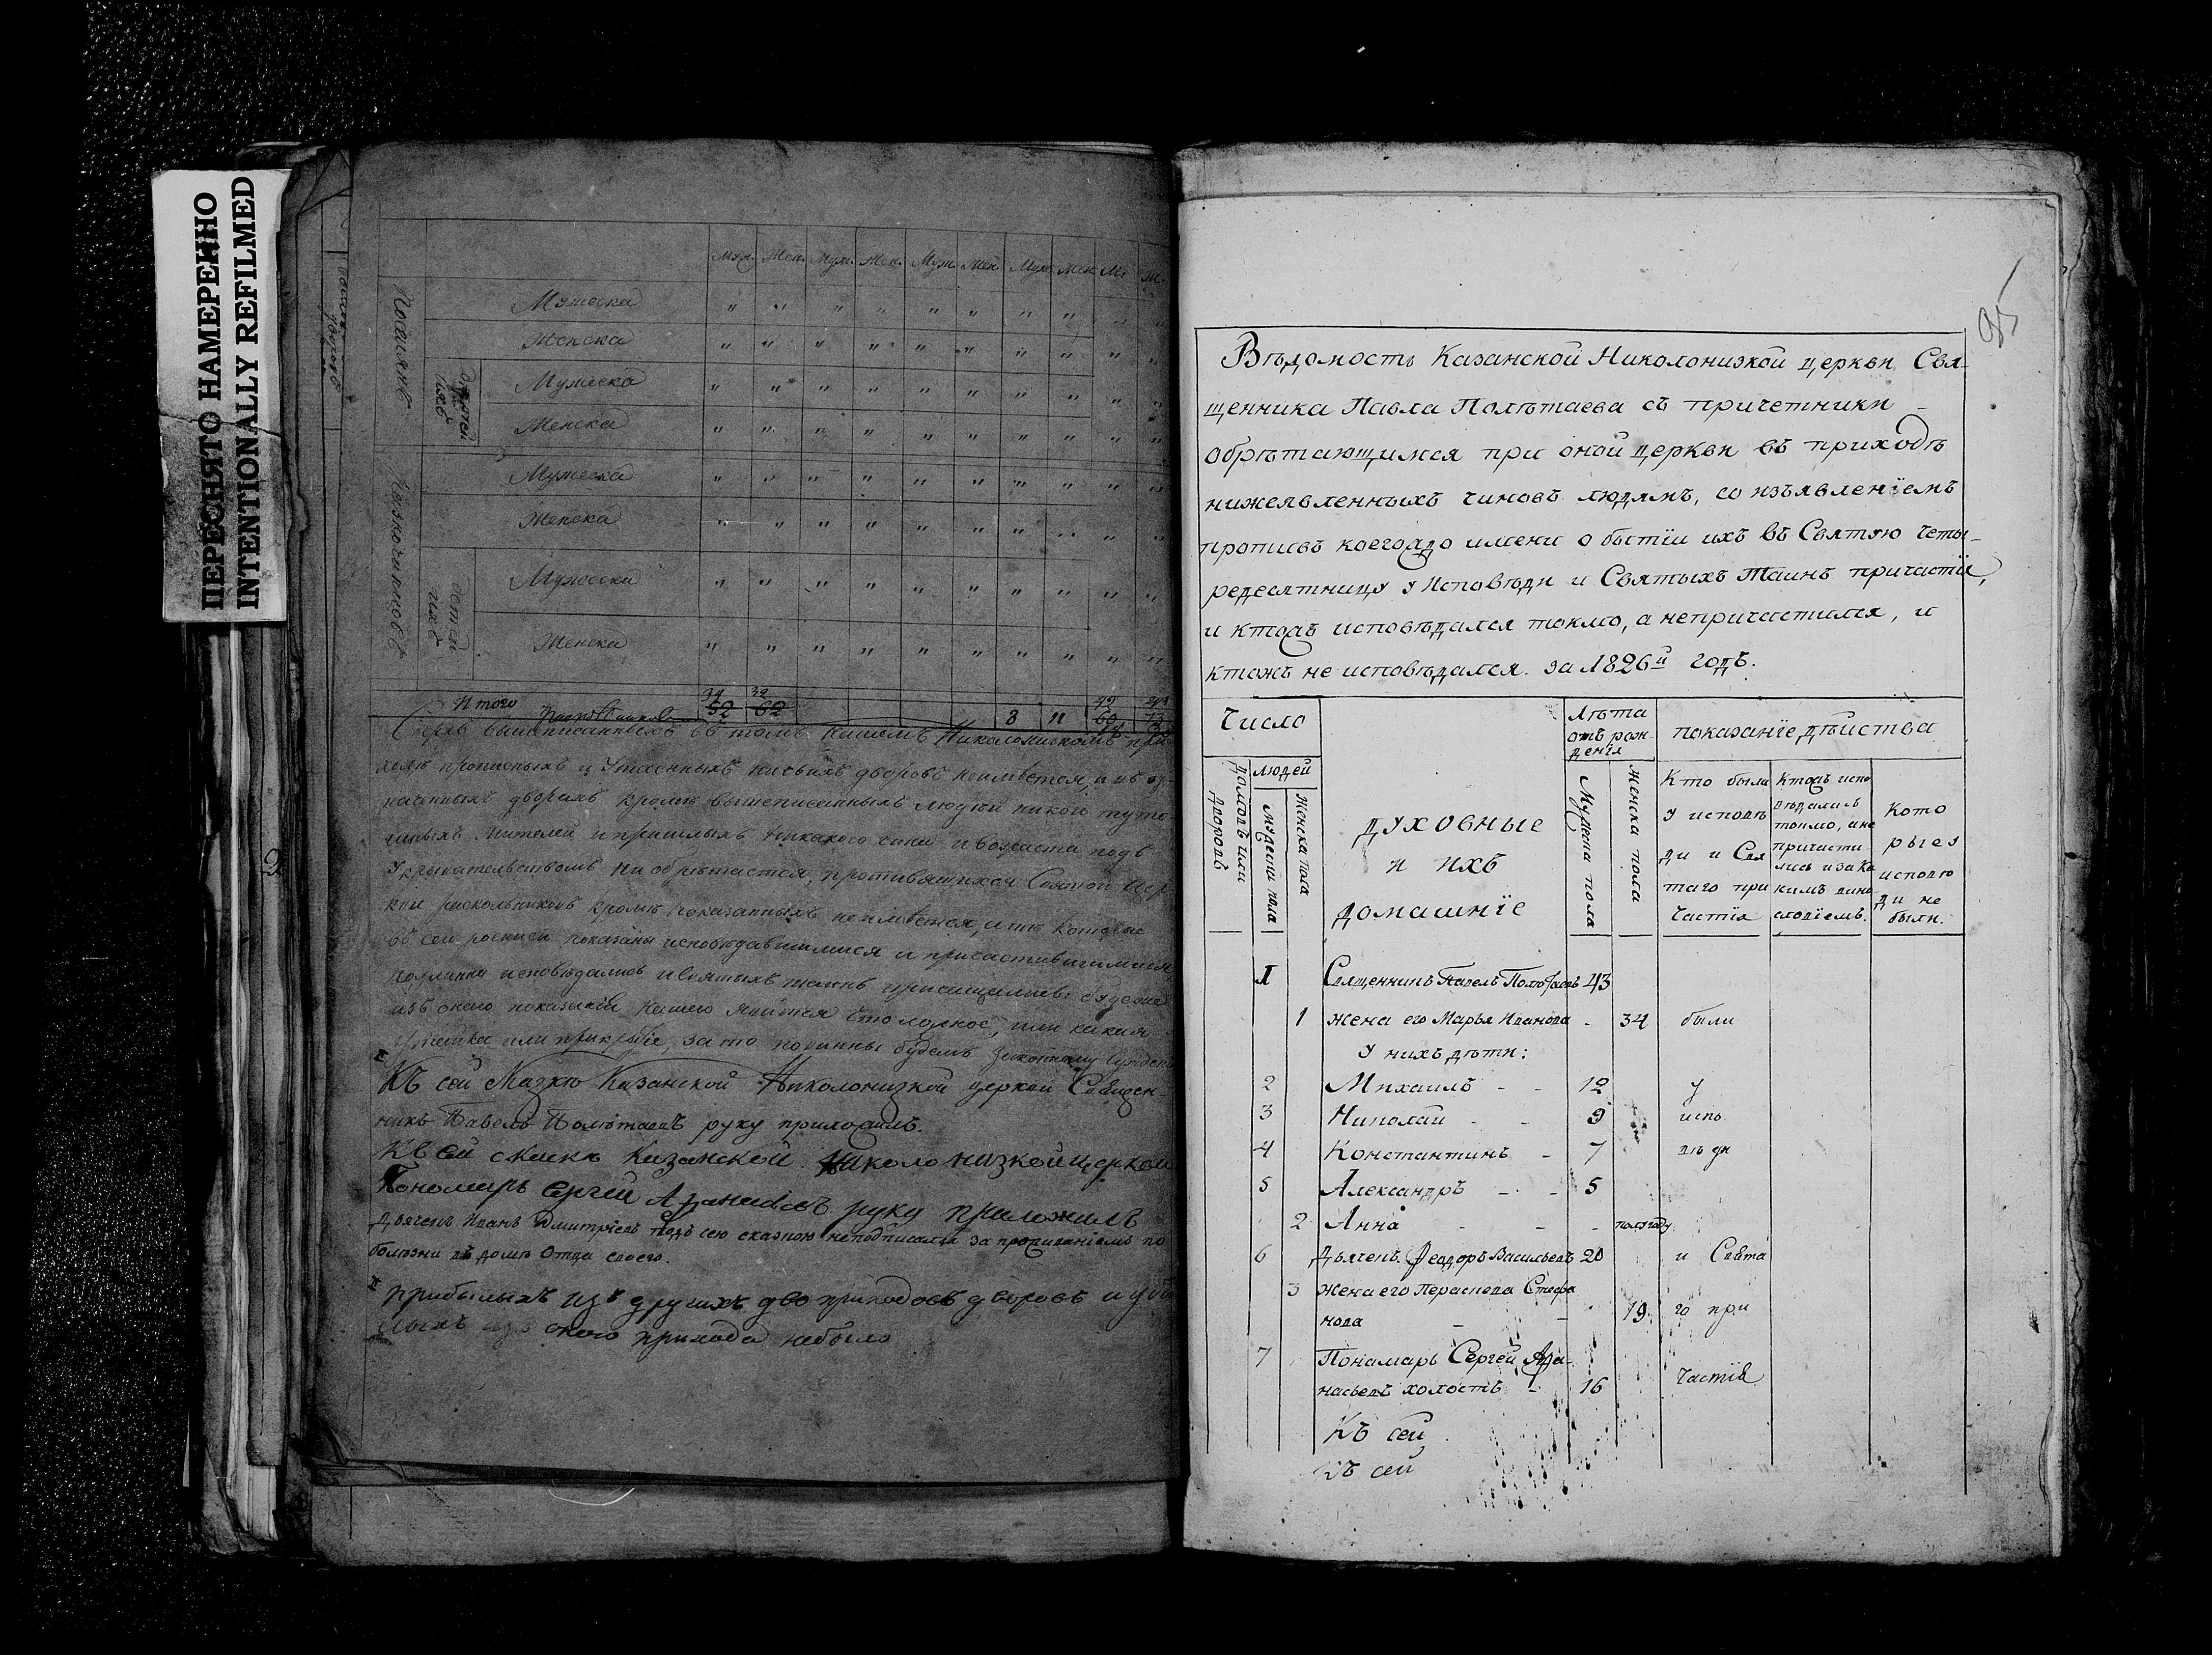 ПЕРЕСНЯТО НАМЕРЕННО
INTENTIONALLY REFILMED
Муж. Жен. Муж. Жен. Муж. Жен. Муж. Жен. Му. Ж.
Посацкихъ
Мужеска
Женска
детей ихъ
Мужеска
Женска
Разночинцовъ
Мужеска
Женска
детей ихъ
Мужеска
Женска
Итого
34 32
52 62 8 11
Сверхъ вышеписанныхъ въ томъ Нашемъ Николонизкомъ при-
ходѣ прописныхъ и Утаенныхъ никакихъ дворовъ неимѣется, и въ оз-
наченныхъ дворахъ кромѣ вышеписанныхъ людей никого туто-
шныхъ жителей и пришлыхъ никакого чина и возраста подъ
Укрывательствомъ не обрѣтается, противящихся Святой Цер-
кви раскольниковъ кромѣ показанныхъ неимѣется, а тѣ которые
въ сей росписи показаны исповѣдавшимися и причастившимися
подлинно исповѣдались и святыхъ таинъ причащались; а ежели
изъ онаго показанія нашего явится что ложное, или какая
утайка или прикрытіе, за то повинны будемъ законному сужденію
Къ сей Сказкѣ Казанской Николонизкой церкви Священ-
никъ Павелъ Полѣтаевъ руку приложилъ.
Къ сей скаскѣ Казанской Николо низкой церкви
Пономарь Сергей Афанасьевъ руку приложилъ
Дьячекъ Иванъ Дмитріевъ подъ сею сказкою неподписался за пропитаніемъ по
болѣзни въ домѣ Отца своего.
прибылыхъ изъ другихъ приходовъ дворовъ и убы
лыхъ изъ онаго прихода небыло
95
Вѣдомость Казанской Николонизкой церкви Свя-
щенника Павла Полѣтаева съ причетники
обрѣтающимся при оной церкви въ приходѣ
нижеявленныхъ чиновъ людямъ, со изъявленіемъ
противъ коегождо имени о бытіи ихъ въ Святую Четы-
редесятницу у Исповѣди и Святыхъ Таинъ причастія,
и ктожъ исповѣдался токмо, а непричастился, и
ктожъ не исповѣдался. за 1826й годъ.
Число
Домовъ или дворовъ
людей
Мужеска пола
Женска пола
духовные
и ихъ
домашніе
Лѣта
отъ рож-
денія
Мужеска пола
Женска пола
показаніе дѣйства
Кто были
у исповѣ
ди и Свя
таго при
частія
Ктожъ испо
вѣдались
токмо, а не
причасти
лись и за ка
кимъ вино
словіемъ.
Кото
рые у
исповѣ
ди не
были.
1 Священникъ Павелъ Полѣтаевъ 43
1 жена его Марья Иванова - 34 были
У нихъ дѣти:
2 Михаилъ - - 12 у
3 Николай - - 9 испо
4 Константинъ - 7 вѣди
5 Александръ - - 5
2 Анна - - - полугоду
6 Дьячекъ Феодоръ Васильевъ 20 и Свята
3 жена его Параскева Стефа
нова - - 19 го при
7 Пономарь Сергей Афа-
насьевъ холостъ - 16 частія
Къ сей
Къ сей